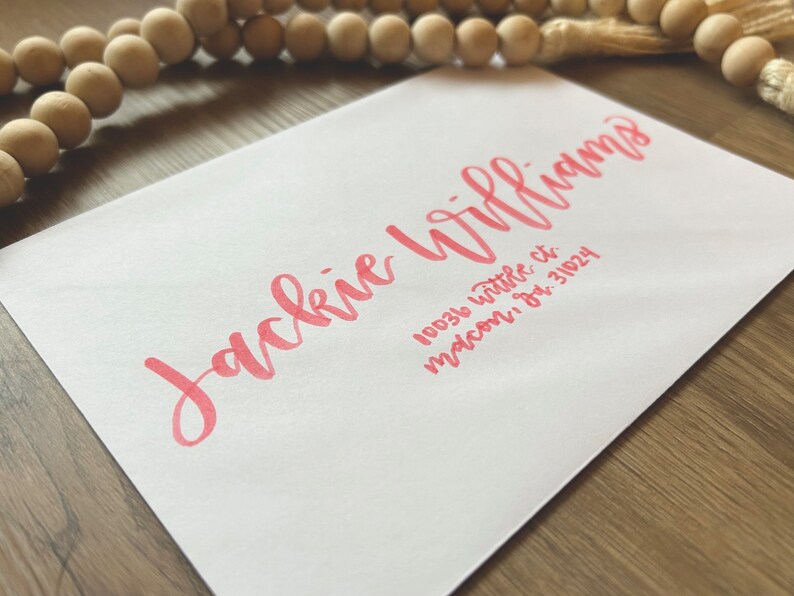 Jackie Williams
10036 Wittle Ct.
Macon, Ga. 31024